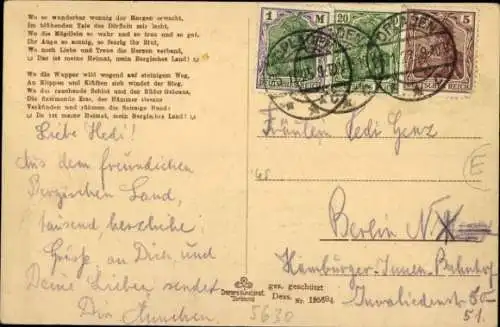 Wo so wunderbar wonnig der Morgen erwacht,
Im blühenden Tale das Dörflein mir lacht,
Wo die Mägdlein so wahr und so treu und so gut,
Ihr Auge so sonnig, so feurig ihr Blut,
Wo noch Liebe und Treue die Herzen verband,
: Da ist meine Heimat, mein Bergisches Land! :
Wo die Wupper wild wogend auf steinigem Weg,
An Klippen und Klüften sich windet der Steg.
Wo der rauchende Schlot und der Räder Gebraus,
Die flammende Esse, der Hämmer
Verkünden und rühmen die Hand:
: Da ist meine Heimat, mein Bergisches Land! :
1 M
20
5
OPLADEN
OPLADEN
REICH
Liebe Hedi!
Aus dem freundlichen
Bergischen Land,
tausend herzliche
Grüße an Dich und
Deine Lieben sendet
Dir
Fräulein Hedi Genz
Berlin N
Hamburger-Innen-Bahnhof
Invalidenstr. 50-
51.
E
ges. geschützt
Dess. Nr.
5630